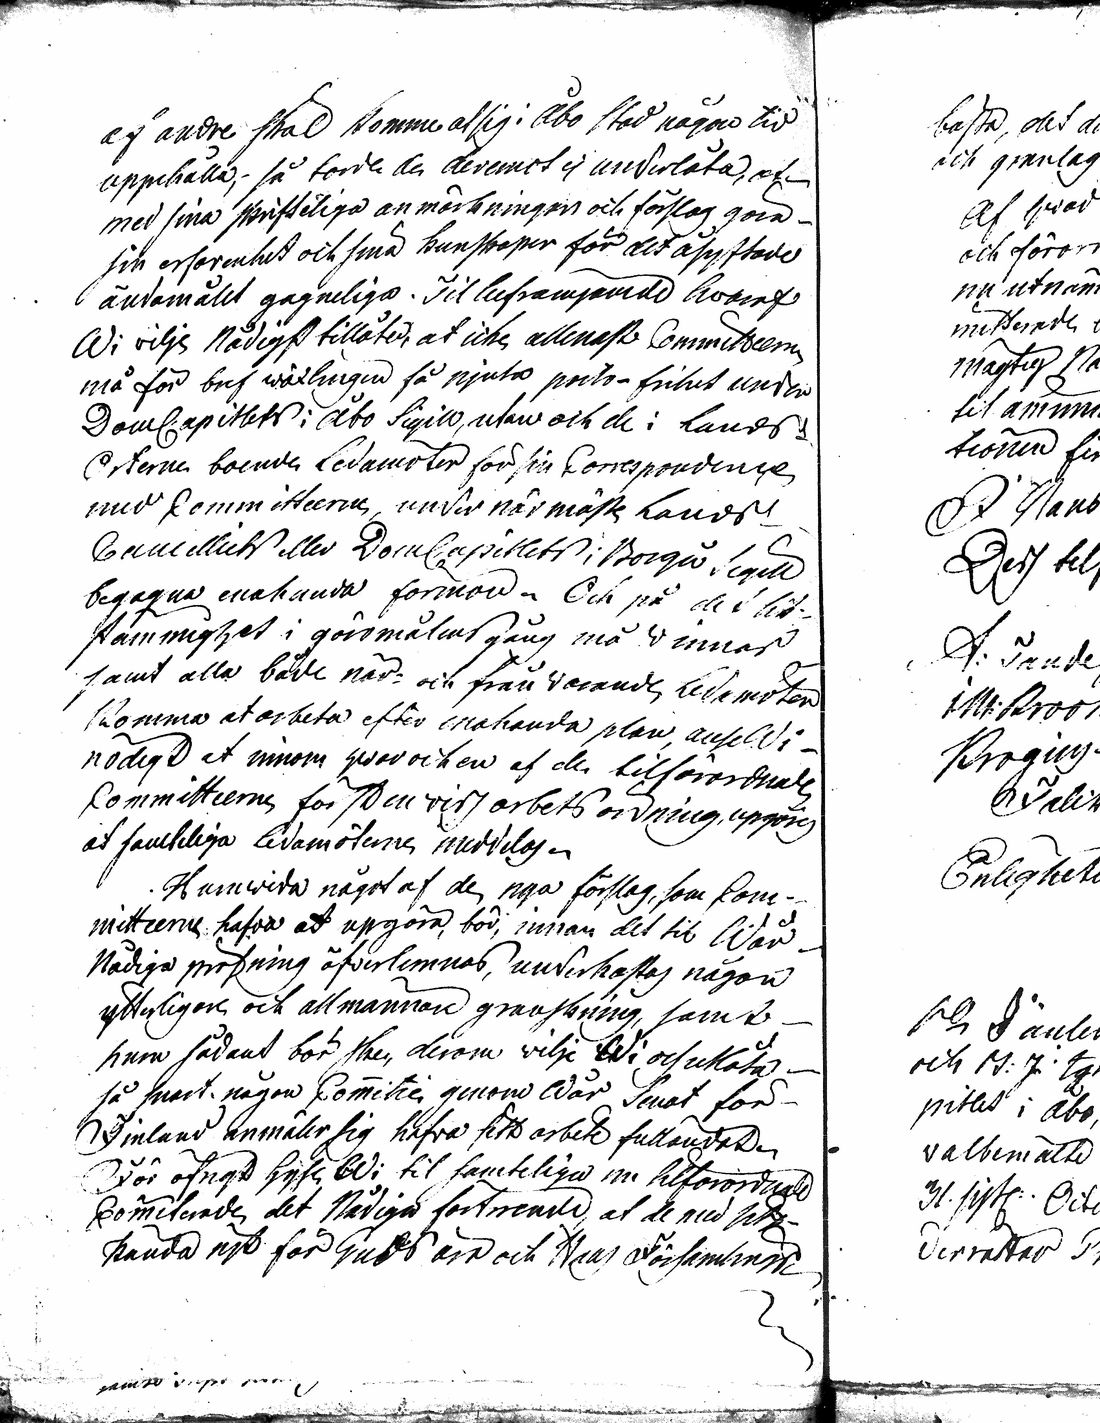 af andre skäl komme at sig i Åbo stad någon tid
uppehålla, så torde de deremot ej underlåta, at
med sina skrifteliga anmärkningar och förslag göra
sin erfarenhet och sina kunskaper för det åsyftade
ändamålet gagneliga. Til befrämjande hvaraf
Wi vilje Nådigst tillåta, at icke allenast Committeerne
må för bref wäxlingen få njuta porto-frihet under
DomCapitlets i Åbo Sigill, utan och de i Lands
Orterne boende Ledamöter för sin Correspondence
med Committeerne, under närmaste Lands
Cancelliets eller DomCapitlets i Borgå Sigill
begagna enahanda förmon. Och på det lik-
stämmighet i göromålens gång må winnas
samt alla både när- och frånvarande Ledamöter
komma at arbeta efter enahanda plan, anse Wi
nödigt at innom hvar och en af de tilförordnade
Committeerne först en viss arbets ordning upgöres
at samtelige Ledamöterne meddelas.
Huruvida något af de nya förslag, som Com-
mitteerne hafva at upgöra, bör, innan det til Wår
Nådiga pröfning öfverlemnas, underkastas någon
ytterligare och allmännare granskning, samt
huru sådant bör ske, derom vilje Wi oss utlåta
så snart någon Comité genom Wår Senat för
Finland anmäler sig hafva sitt arbete fulländat.
För öfrigt hyse Wi til samtelige nu tilförordnade
Comiterade, det Nådiga förtroende, at de med
kända nit för Guds ära och Hans Församlings
bästa, det
och granlag
Af
och föror
nu utnäm
mitterade
mägtig Na
til
tionen
Dess
Enlighet
och
pitlet i Åbo,
valbemälte